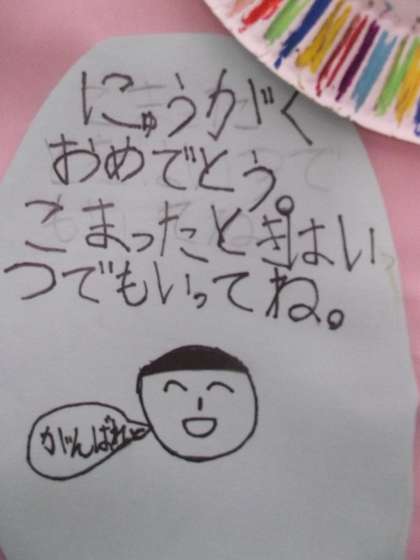 にゅうがく
おめでとう。
こまったときはい
つでもいってね。
がんばれ